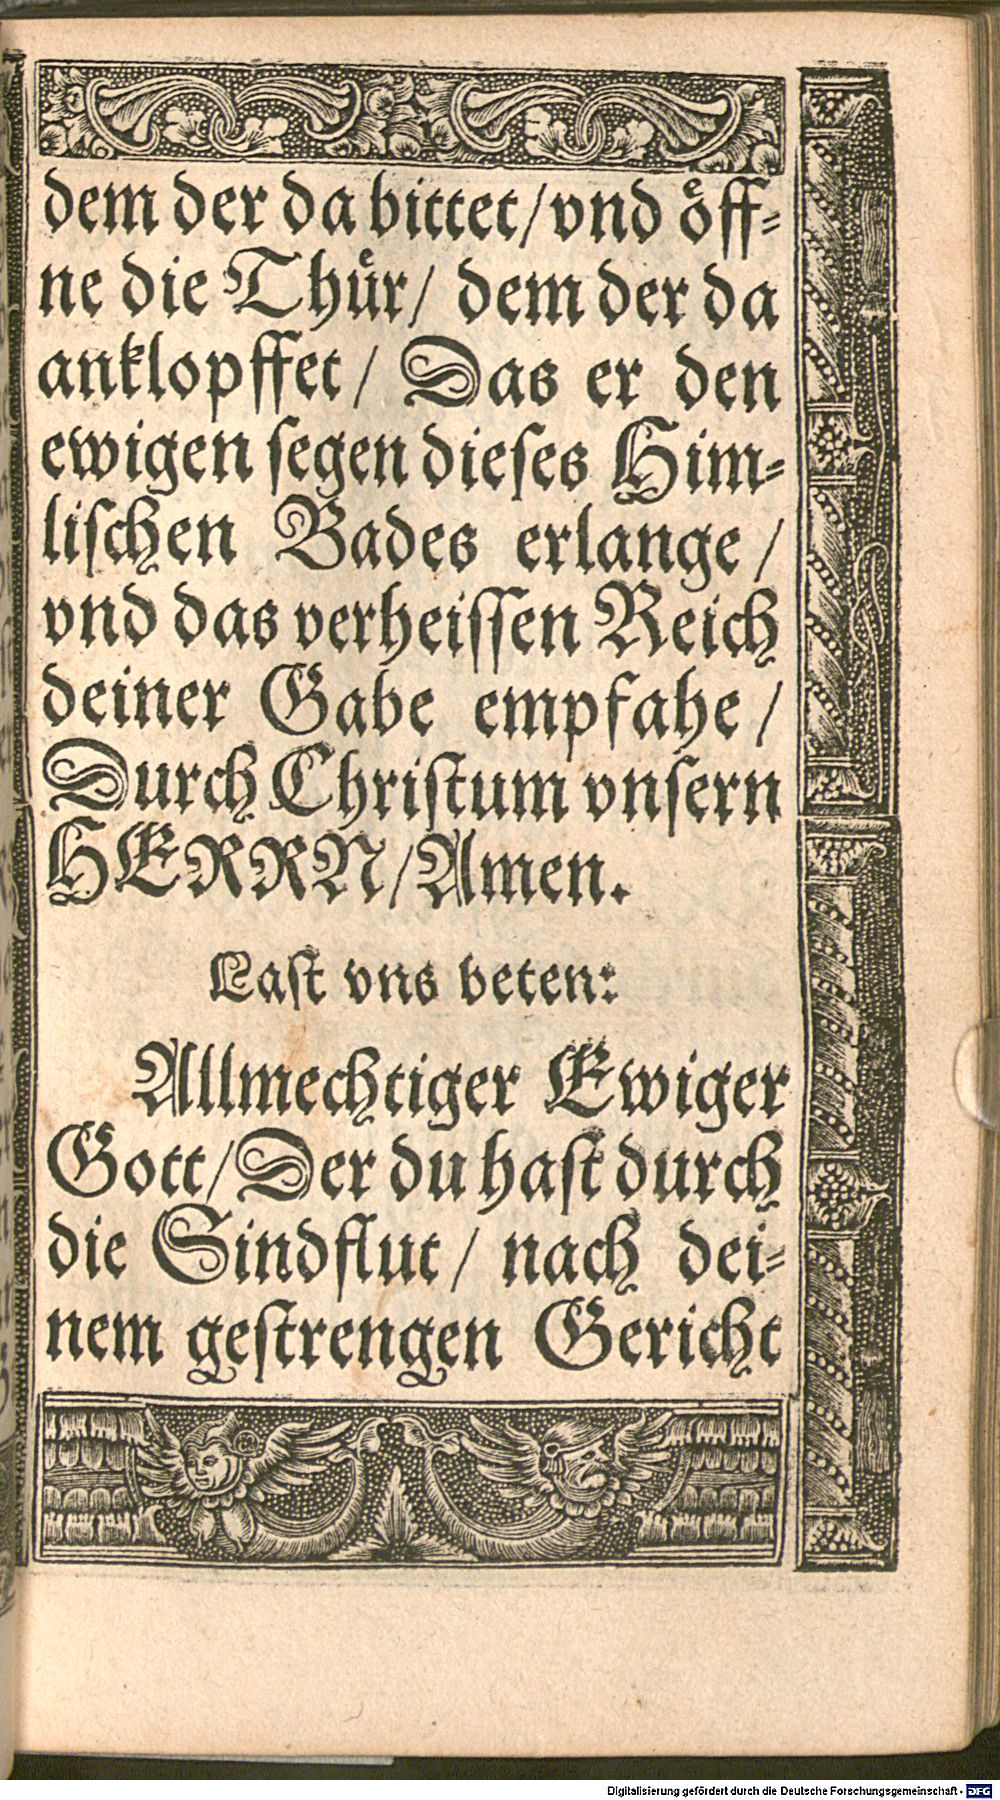 dem der da bittet/vnd oͤff-
ne die Thuͤr/ dem der da
anklopffet/ Das er den
ewigen segen dieses Him-
lischen Bades erlange/
vnd das verheissen Reich
deiner Gabe empfahe/
Durch Christum vnsern
HERRN/Amen.
Last vns beten:
Allmechtiger Ewiger
Gott/Der du hast durch
die Sindflut/ nach dei-
nem gestrengen Gericht
Digitalisierung gefördert durch die Deutsche Forschungsgemeinschaft - DFG